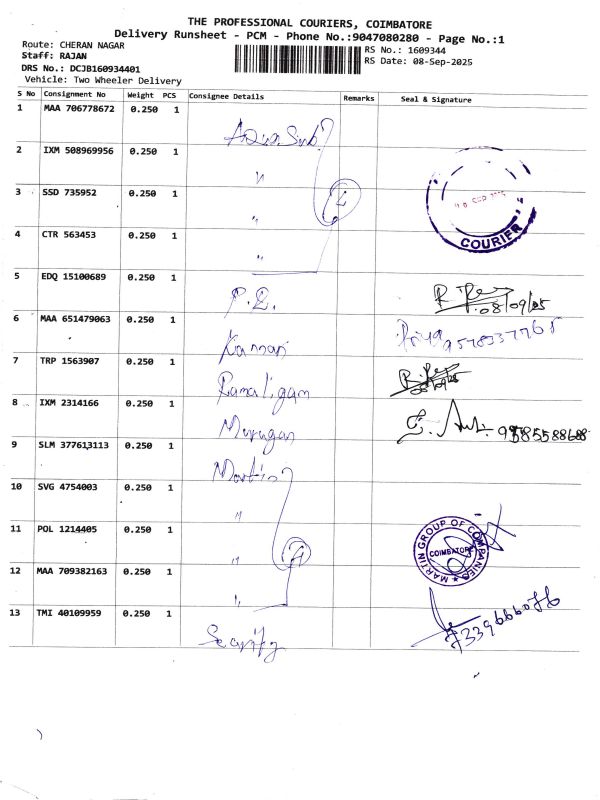 THE PROFESSIONAL COURIERS, COIMBATORE
Delivery Runsheet - PCM - Phone No.:9047080280 - Page No.:1
Route: CHERAN NAGAR
RS No.: 1609344
Staff: RAJAN
RS Date: 08-Sep-2025
DRS No.: DCJB160934401
Vehicle: Two Wheeler Delivery
S No Consignment No Weight PCS Consignee Details Remarks Seal & Signature
1 MAA 706778672 0.250 1
2 IXM 508969956 0.250 1 "
3 SSD 735952 0.250 1 " 4
4 CTR 563453 0.250 1 "
COURIER
5 EDQ 15100689 0.250 1 08/09/25
6 MAA 651479063 0.250 1 Kannan Priya 9578337768
7 TRP 1563907 0.250 1 Ramaligam 08/09/25
8 IXM 2314166 0.250 1 Murugan
9 SLM 377613113 0.250 1 Martin
10 SVG 4754003 0.250 1 "
11 POL 1214405 0.250 1 " 4
MARTIN GROUP OF COMPANIES
COIMBATORE
12 MAA 709382163 0.250 1 "
13 TMI 40109959 0.250 1